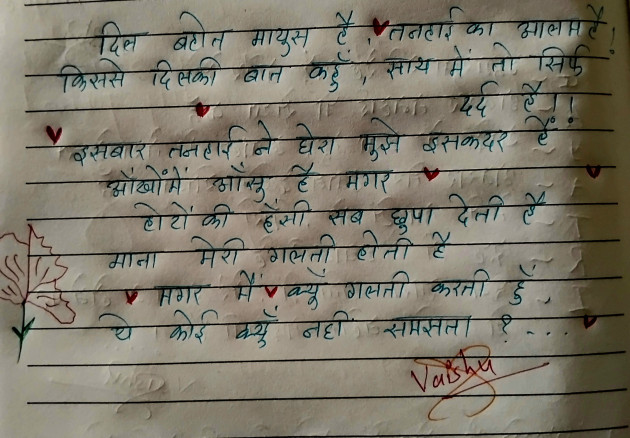 दिल बहोत मायुस है, तनहाई का आलम है!
किससे दिलकी बात कहुँ, साथ में तो सिर्फ
दर्द है।!
इसबार तनहाई ने घेरा मुझे इसकदर है
आँखोंमें आँसु है मगर
होटों की हँसी सब छुपा देती है
माना मेरी गलती होती है
मगर मैं क्यूँ गलती करती हुँ,
ये कोई क्यूँ नही समझता ? ....
Vaishu